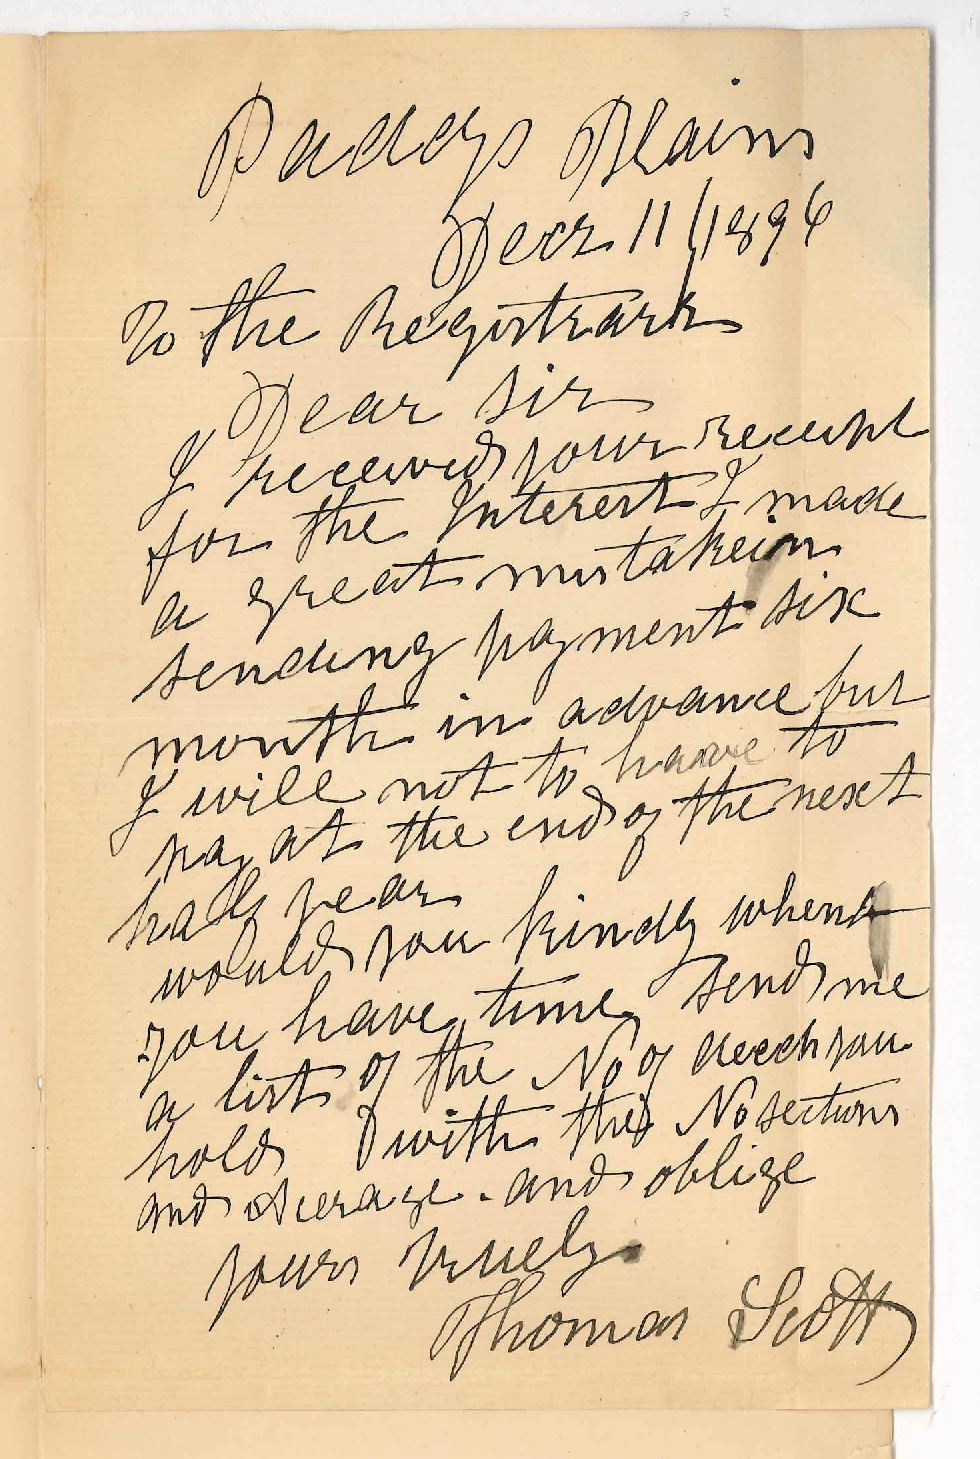 Paddys Plains
Decr 11/1896
To the Registrar
Dear Sir
I received your receipt
for the Interest I made
a great mistake in
sending payment six
month in advance but
I will not to have to
pay at the end of the next
half year
would you kindly when
you have time send me
a list of the No of deeds you
hold with the No sections
and acerage. and oblige
yours truely
Thomas Scott